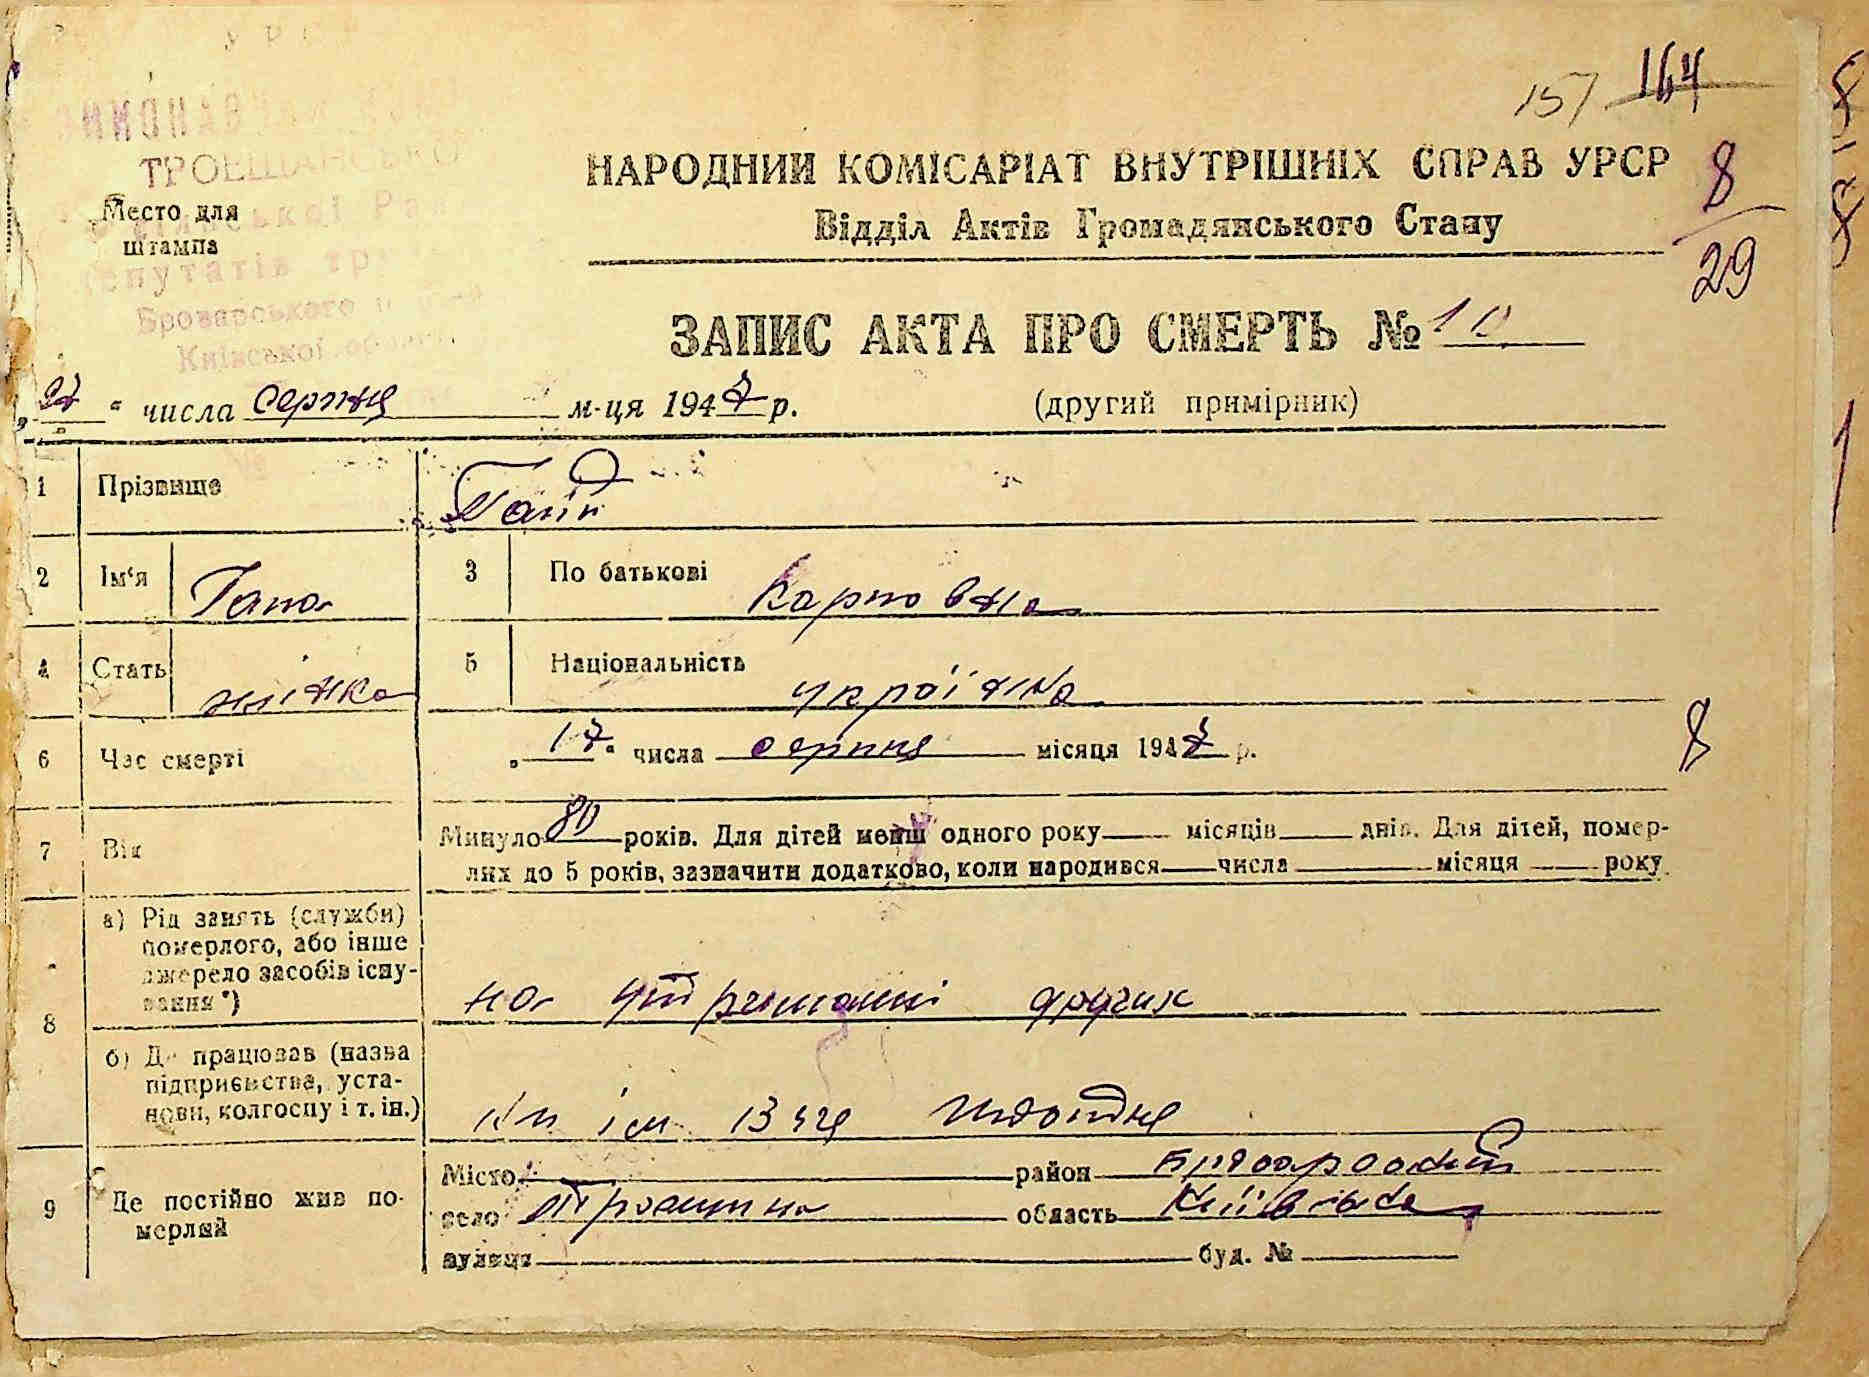 УРСР
ТРОЕЩАНСЬКО
Депутатів
Броварського
Київської
Место для
штампа
157 164
НАРОДНИЙ КОМІСАРІАТ ВНУТРІШНІХ СПРАВ УРСР
Відділ Актів Громадянського Стану
8
29
ЗАПИС АКТА ПРО СМЕРТЬ № 10
„27“ числа серпня м-ця 1947 р. (другий примірник)
1 Прізвище Гайд
2 Ім‘я Гана 3 По батькові Карповна
4 Стать жінка 5 Національність українка
6 Час смерті „17“ числа серпня місяця 1947 р.
8
7 Вік Минуло 80 років. Для дітей менш одного року місяців днів. Для дітей, помер-
лих до 5 років, зазначити додатково, коли народився числа місяця року
8 а) Рід занять (служби)
померлого, або інше
джерело засобів існу-
вання*)
на утриманні других
б) Де працював (назва
підприємства, уста-
нови, колгоспу і т. ін.)
ім
9 Де постійно жив по-
мерлий
Місто район Броварський
село Троєщина область Київська
вулиця буд. №